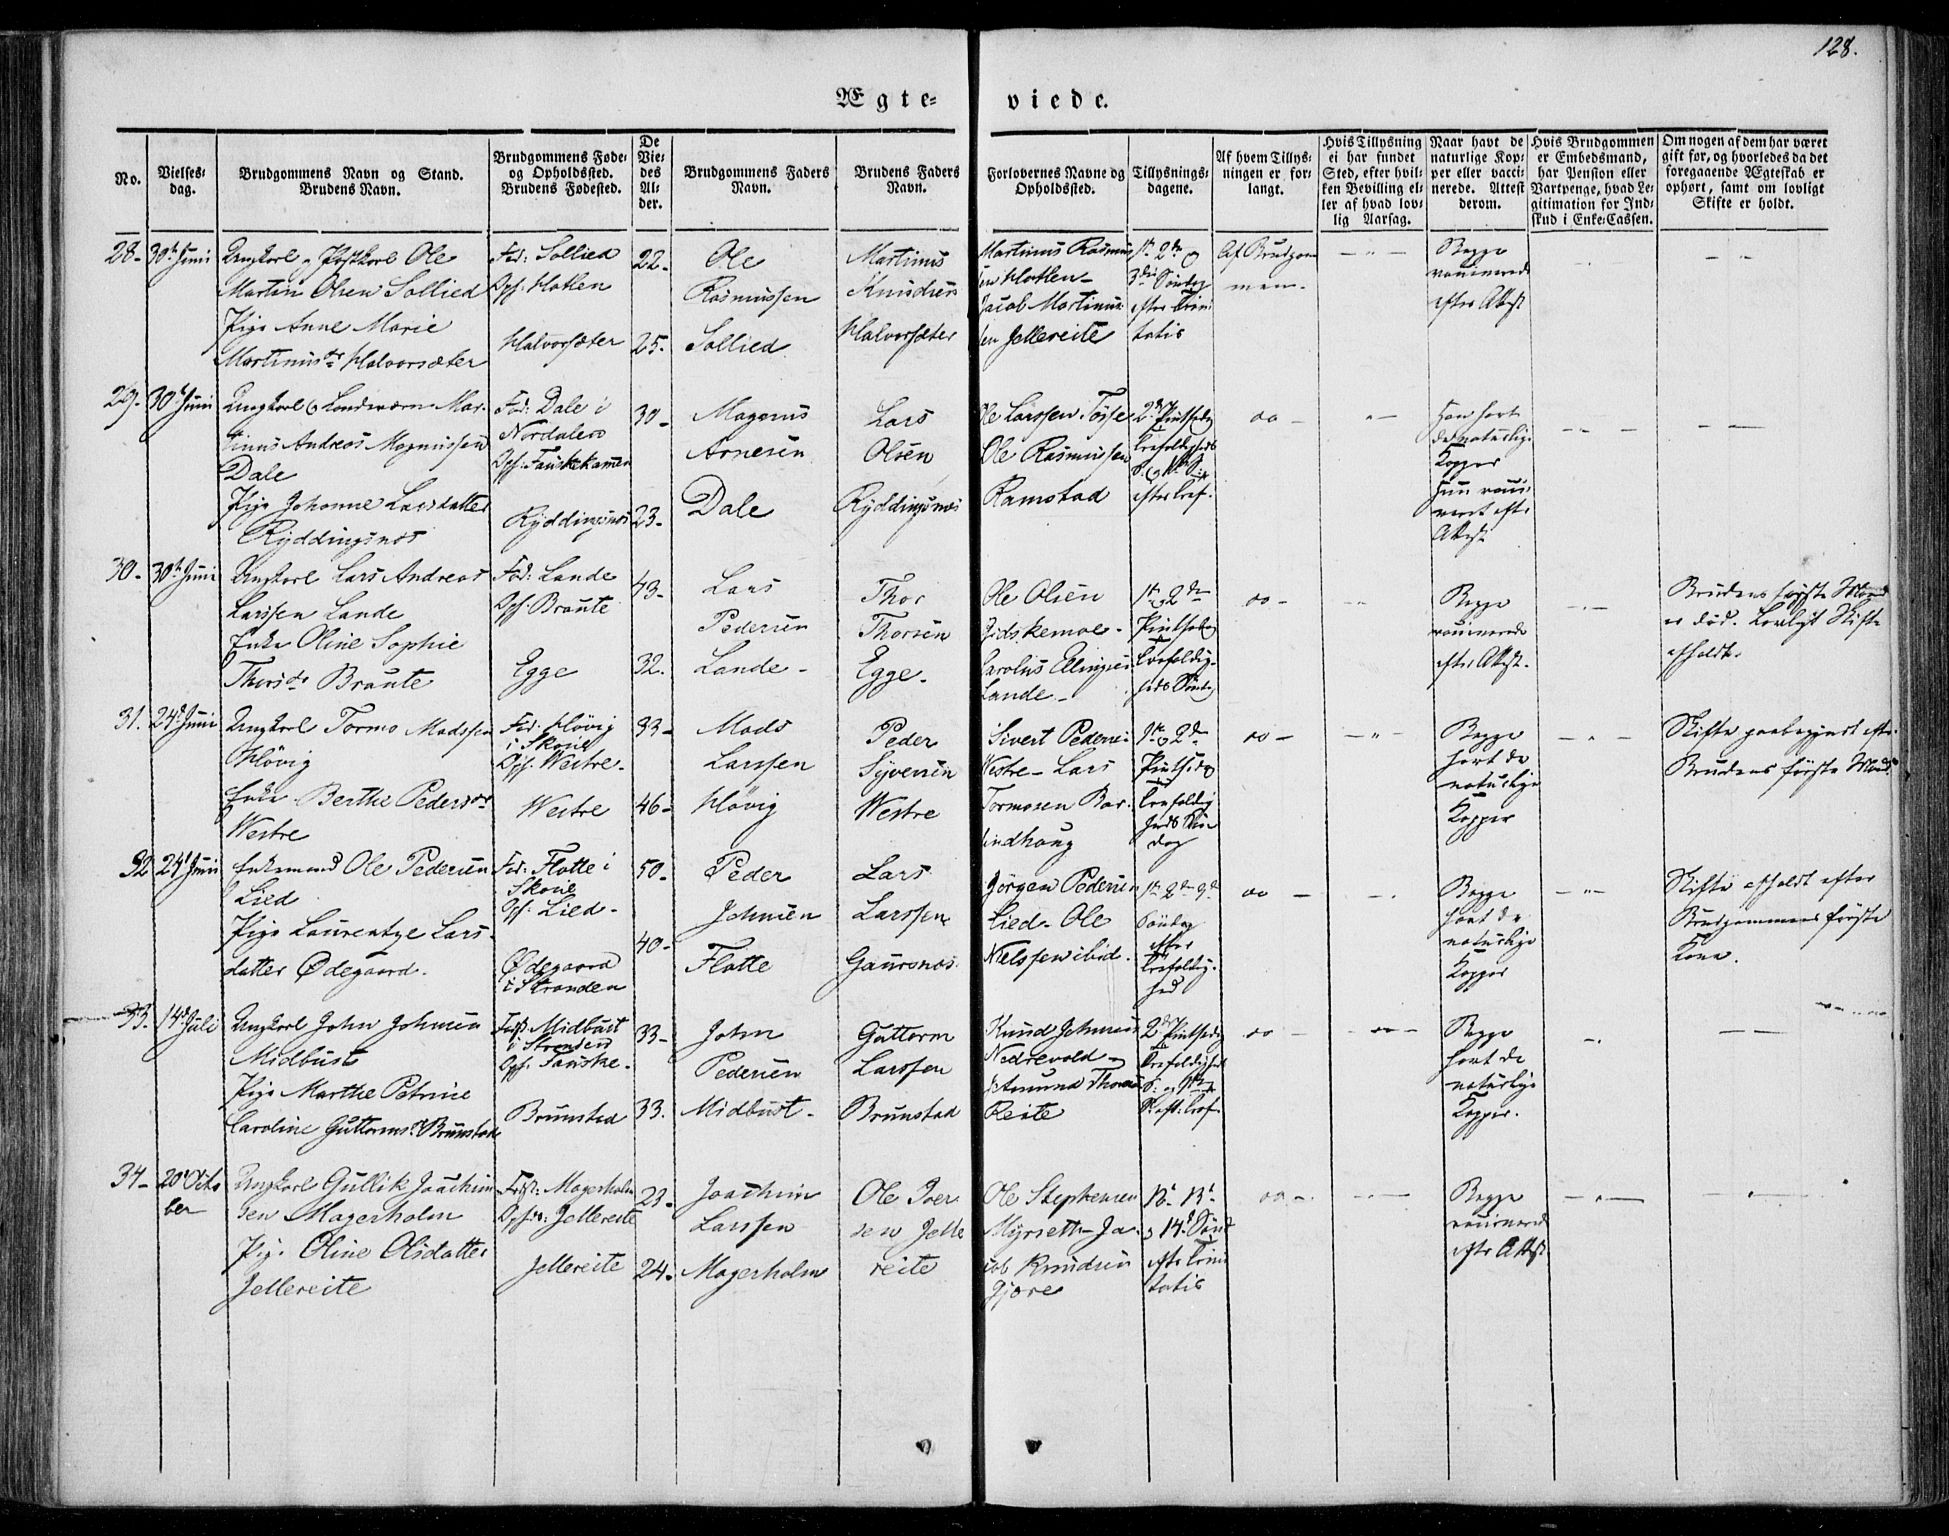 128.
Ægte-
viede.
No.
Vielses-
dag.
Brudgommens Navn og Stand.
Brudens Navn.
Brudgommens Føde-
og Opholdssted.
Brudens Fødested.
De
Vie-
des
Al-
der.
Brudgommens Faders
Navn.
Brudens Faders
Navn.
Forlovernes Navne og
Opholdssted.
Tillysnings-
dagene.
Af hvem Tillys-
ningen er for-
langt.
Hvis Tillysning
ei har fundet
Sted, efter hvil-
ken Bevilling el-
ler af hvad lov-
lig Aarsag.
Naar havt de
naturlige Kop-
per eller vacci-
nerede. Attest
derom.
Hvis Brudgommen
er Embedsmand,
har Pension eller
Vartpenge, hvad Le-
gitimation for Ind-
skud i Enke-Cassen.
Om nogen af dem har været
gift før, og hvorledes da det
foregaaende Ægteskab er
ophørt, samt om lovligt
Skifte er holdt.
28- 30te Juni
Ungkarl Ole
Martin Olsen Sollied
Pige Anne Marie
Martinusdr Halvorsæter
Fød: Sollied
Oph. Hatlen
Halvorsæter
22-
25-
Ole
Rasmussen
Sollied
Martinus
Knudsen
Halvorsæter
Martinus Rasmus
sen Hatlen-
Jacob Martinus-
sen Jellereite
1te 2de &
3die Søndag
efter Trini
tatis
Af Brudgom
men-
Begge
vaccinerede
efter Attest
29- 30te Juni
Ungkarl & Landeværn Mar-
tinus Andreas Magnussen
Dale
Pige Johanne Larsdatter
Ryddingsnes
Fød: Dale i
Nordalen
Oph: Fauskekamen
Ryddingsnes
30-
23-
Magnus
Arnesen
Dale
Lars
Olsen
Ryddingsnes
Ole Larssen Tösse
Ole Rasmussen
Ramstad
2d Pintsedag
Trefoldigheds
S. &
efter Tref.
do -
Han havt
de naturlige
Kopper
Hun vacci
neret efter
Attest
30- 30te Juni
Ungkarl Lars Andreas
Larssen Lande
Enke Oline Sophie
Thorsdr Braute
Fød: Lande
Oph: Braute
Egge
43-
32.
Lars
Pedersen
Lande-
Thor
Thorsen
Egge-
Ole Olsen
Gidskemoe-
Carolus Ellingsen
Lande-
1te & 2den
Pintsedag
Trefoldig-
heds Søndag
do -
Begge
vaccinerede
efter Attest.
Brudens første Mand
er død. Lovligt Skifte
afholdt.
31. 24de Juni
Ungkarl Tormo Madssen
Hövig
Enke Berthe Pedersdr
Westre
Fød: Hövig
i Skoue
Oph. Westre-
Westre
33-
46-
Mads
Larssen
Hövig
Peder
Syversen
Westre
Sivert Pedersen
Westre- Lars
Tormosen Bar-
lindhaug
1te & 2den
Pintsedag
Trefoldig
heds Søn
dag
do -
Begge
havt de
naturlige
Kopper
Skifte paabegyndt efter
Brudens første Mand
32 24de Juni
Enkemand Ole Pedersen
Lied
Pige Laurentze Lars-
datter Ødegaard.
Fød: Flotte i
Skoue
Oph: Lied-
Ødegaard
i Stranden
50-
40-
Peder
Johnsen
Flotte
Lars
Larssen
Gaursnes
Jörgen Pedersen
Lied- Ole
Nielssen ibid.
1te 2den 3de
Söndag
efter
Trefoldig-
hed
do -
Begge
havt de
naturlige
Kopper
Skifte afholdt efter
Brudgommens første
Kone.
33. 14de Juli
Ungkarl John Johnsen
Midbust
Pige Marthe Petrine
Caroline Guttormsdr Brunstad
Født: Midbust
i Stranden
Oph. Fauske-
Brunstad
33-
33.
John
Pedersen
Midbust-
Guttorm
Larssen
Brunstad
Knud Johnsen
Nedrevold-
Amund Thomas
Reite
2d Pintsedag
Trefoldighed
S. & 1te
S. eft. Tref.
do -
do -
Begge
havt de
naturlige
Kopper.
34- 20de Octo
ber
Ungkarl Gullik Joachim
sen Magerholm
Pige Oline Olsdatter
Jellereite
Født: Magerholm
Ophs: Jellereite
Jellereite
23-
24-
Joachim
Larssen
Magerholm
Ole Iver
sen Jelle
reite
Ole Stephensen
Myrseth- Ja-
cob Knudsen
Gjære
12te 13de
& 14de Sönd
efter Trini
tatis
do -
Begge
vaccinerede
efter Attest